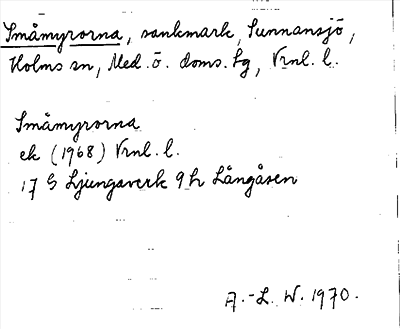 Småmyrorna, sankmark, Sunnansjö,
Holms sn, Med. ö. doms. sg, Vrnl. l.
Småmyrorna
ek (1968) Vrnl. l.
17 G Ljungaverk 9 h Långåsen
A.-L. W. 1970.